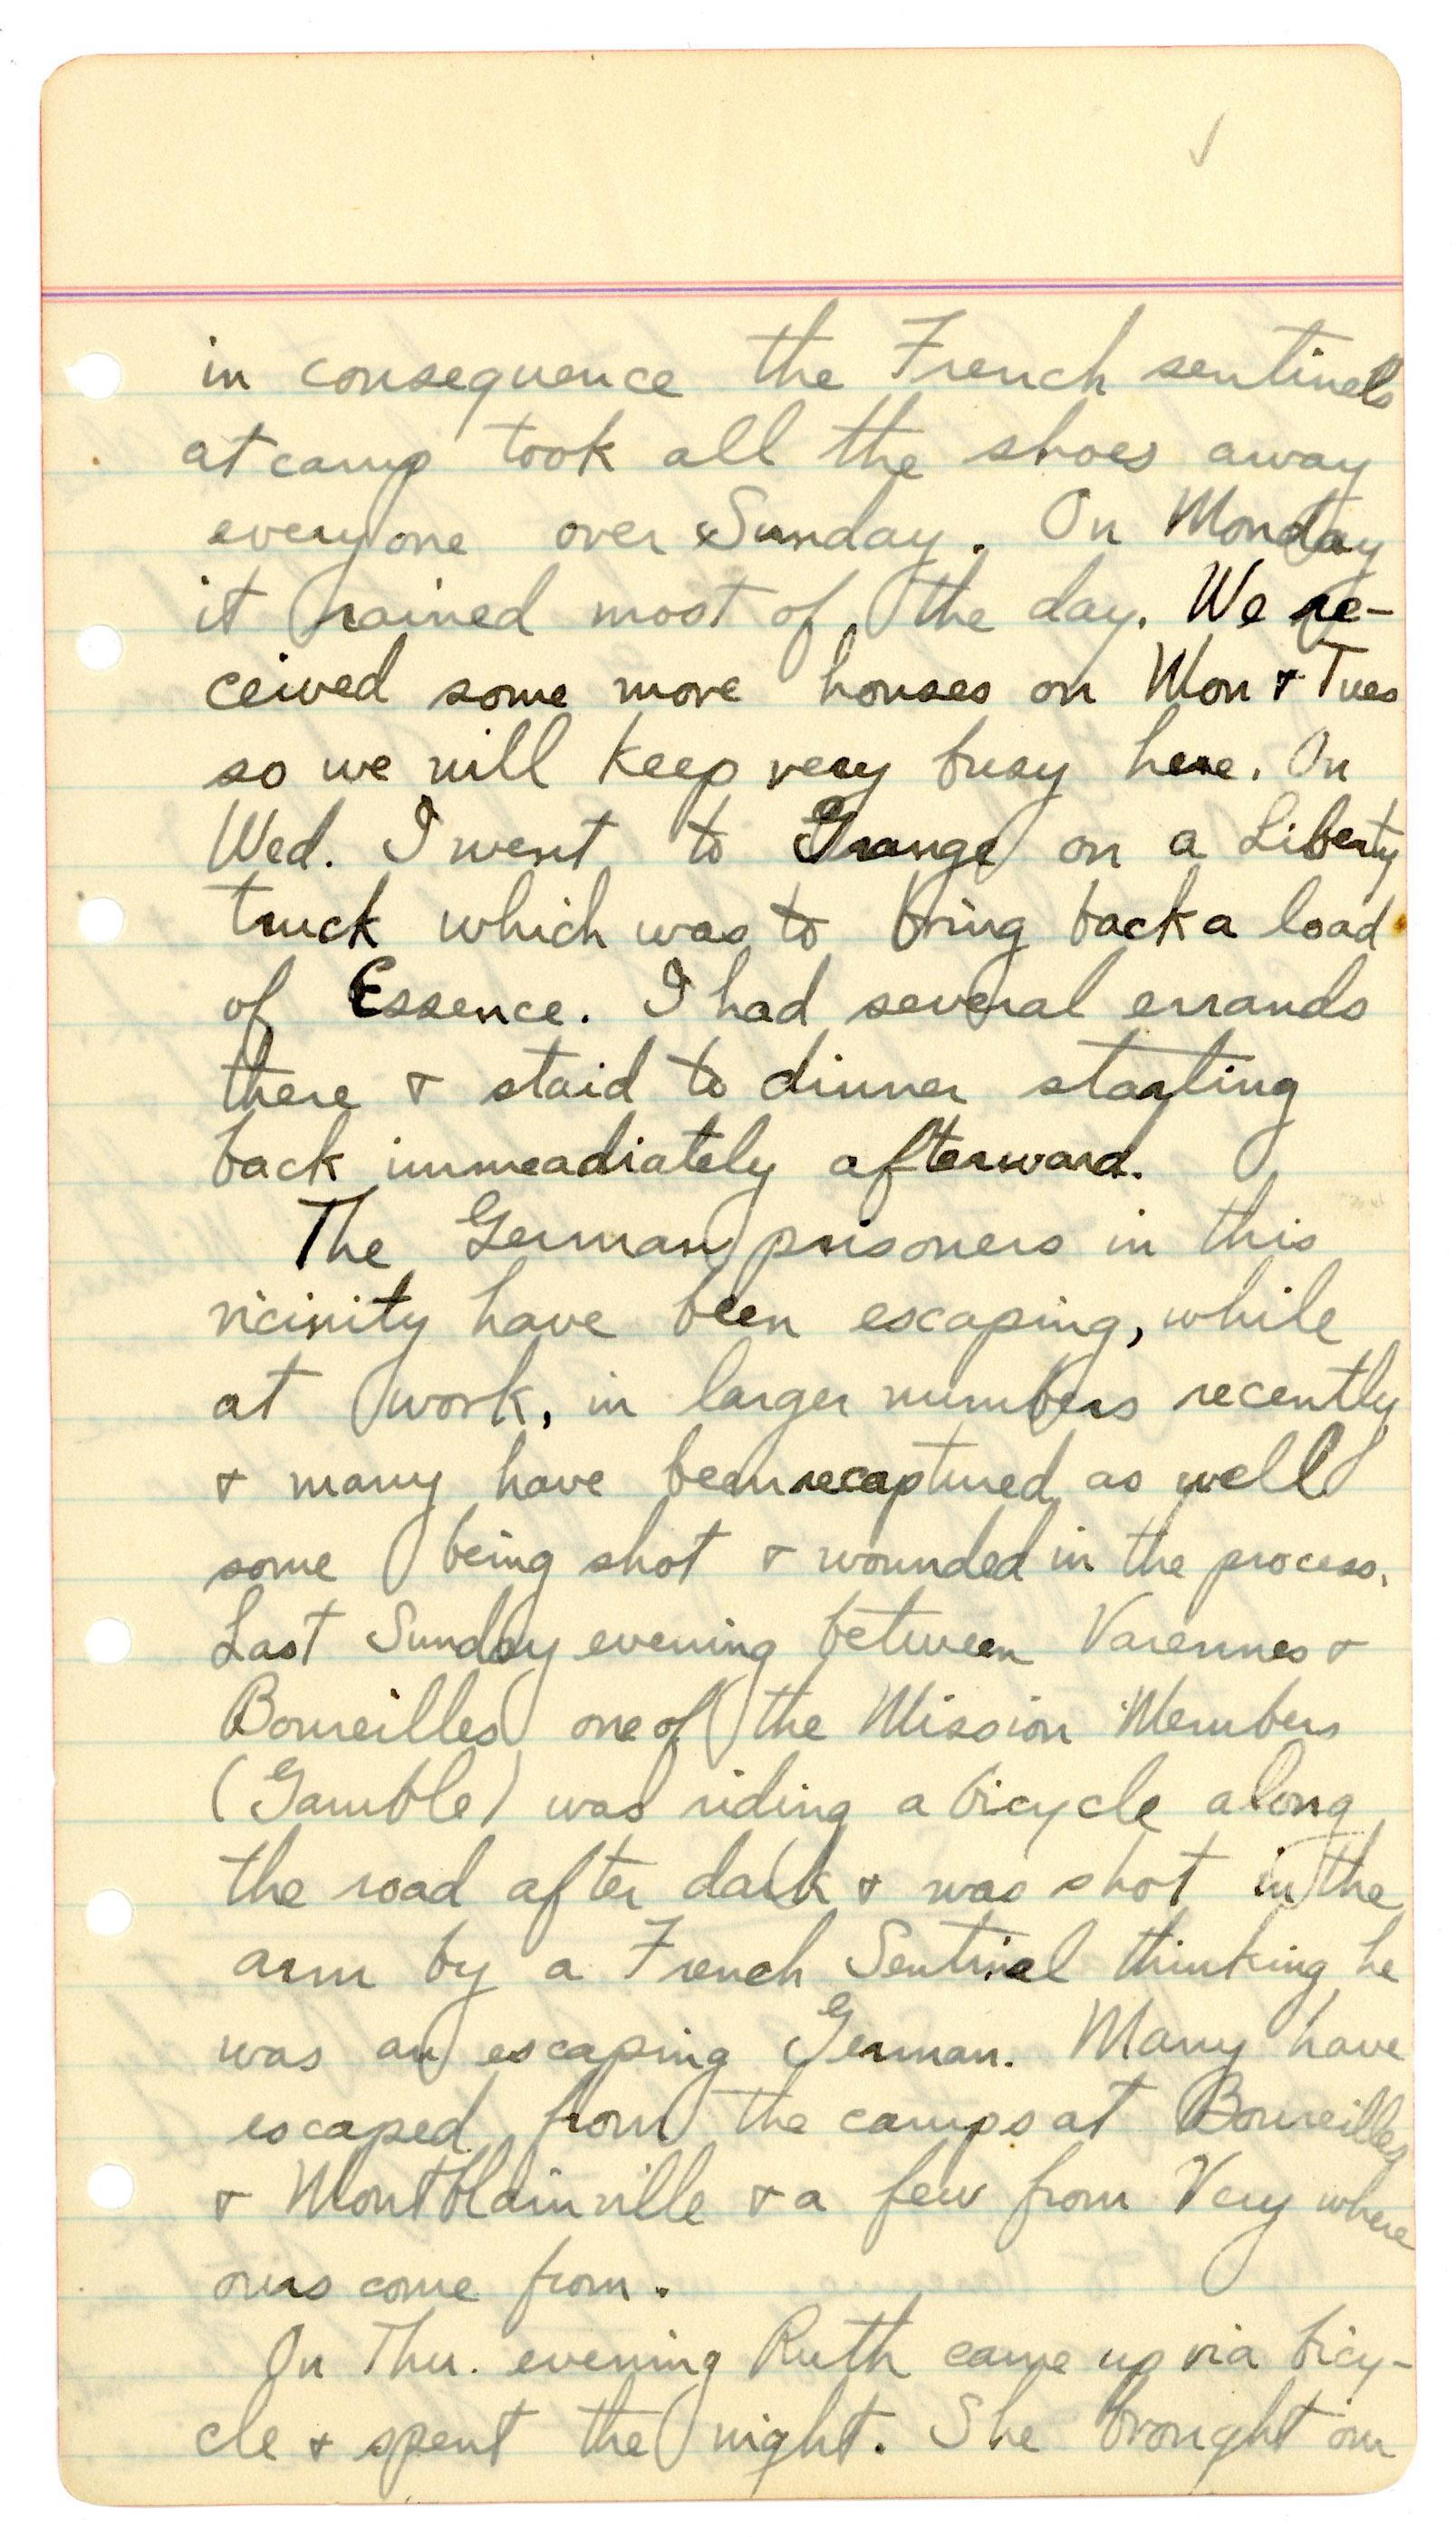 in consequence the French sentinels
at camp took all the shoes away
everyone over Sunday. On Monday
it rained most of the day. We re-
ceived some more houses on Mon & Tues
so we will keep very busy here. On
Wed. I went to Grange on a Liberty
truck which was to bring back a load
of Essence. I had several errands
there & staid to dinner starting
back immeadiately afterward.
The German prisoners in this
vicinity have been escaping, while
at work, in larger numbers recently
& many have been recaptured as well
some being shot & wounded in the process.
Last Sunday evening between Varennes &
Boureilles one of the Mission Members
(Gamble) was riding a bicycle along
the road after dark & was shot in the
arm by a French Sentinel thinking he
was an escaping German. Many have
escaped from the camps at Boureilles
& Montblainville & a few from Very where
ours come from.
On Thu. evening Ruth came up via bicy-
cle & spent the night. She brought our